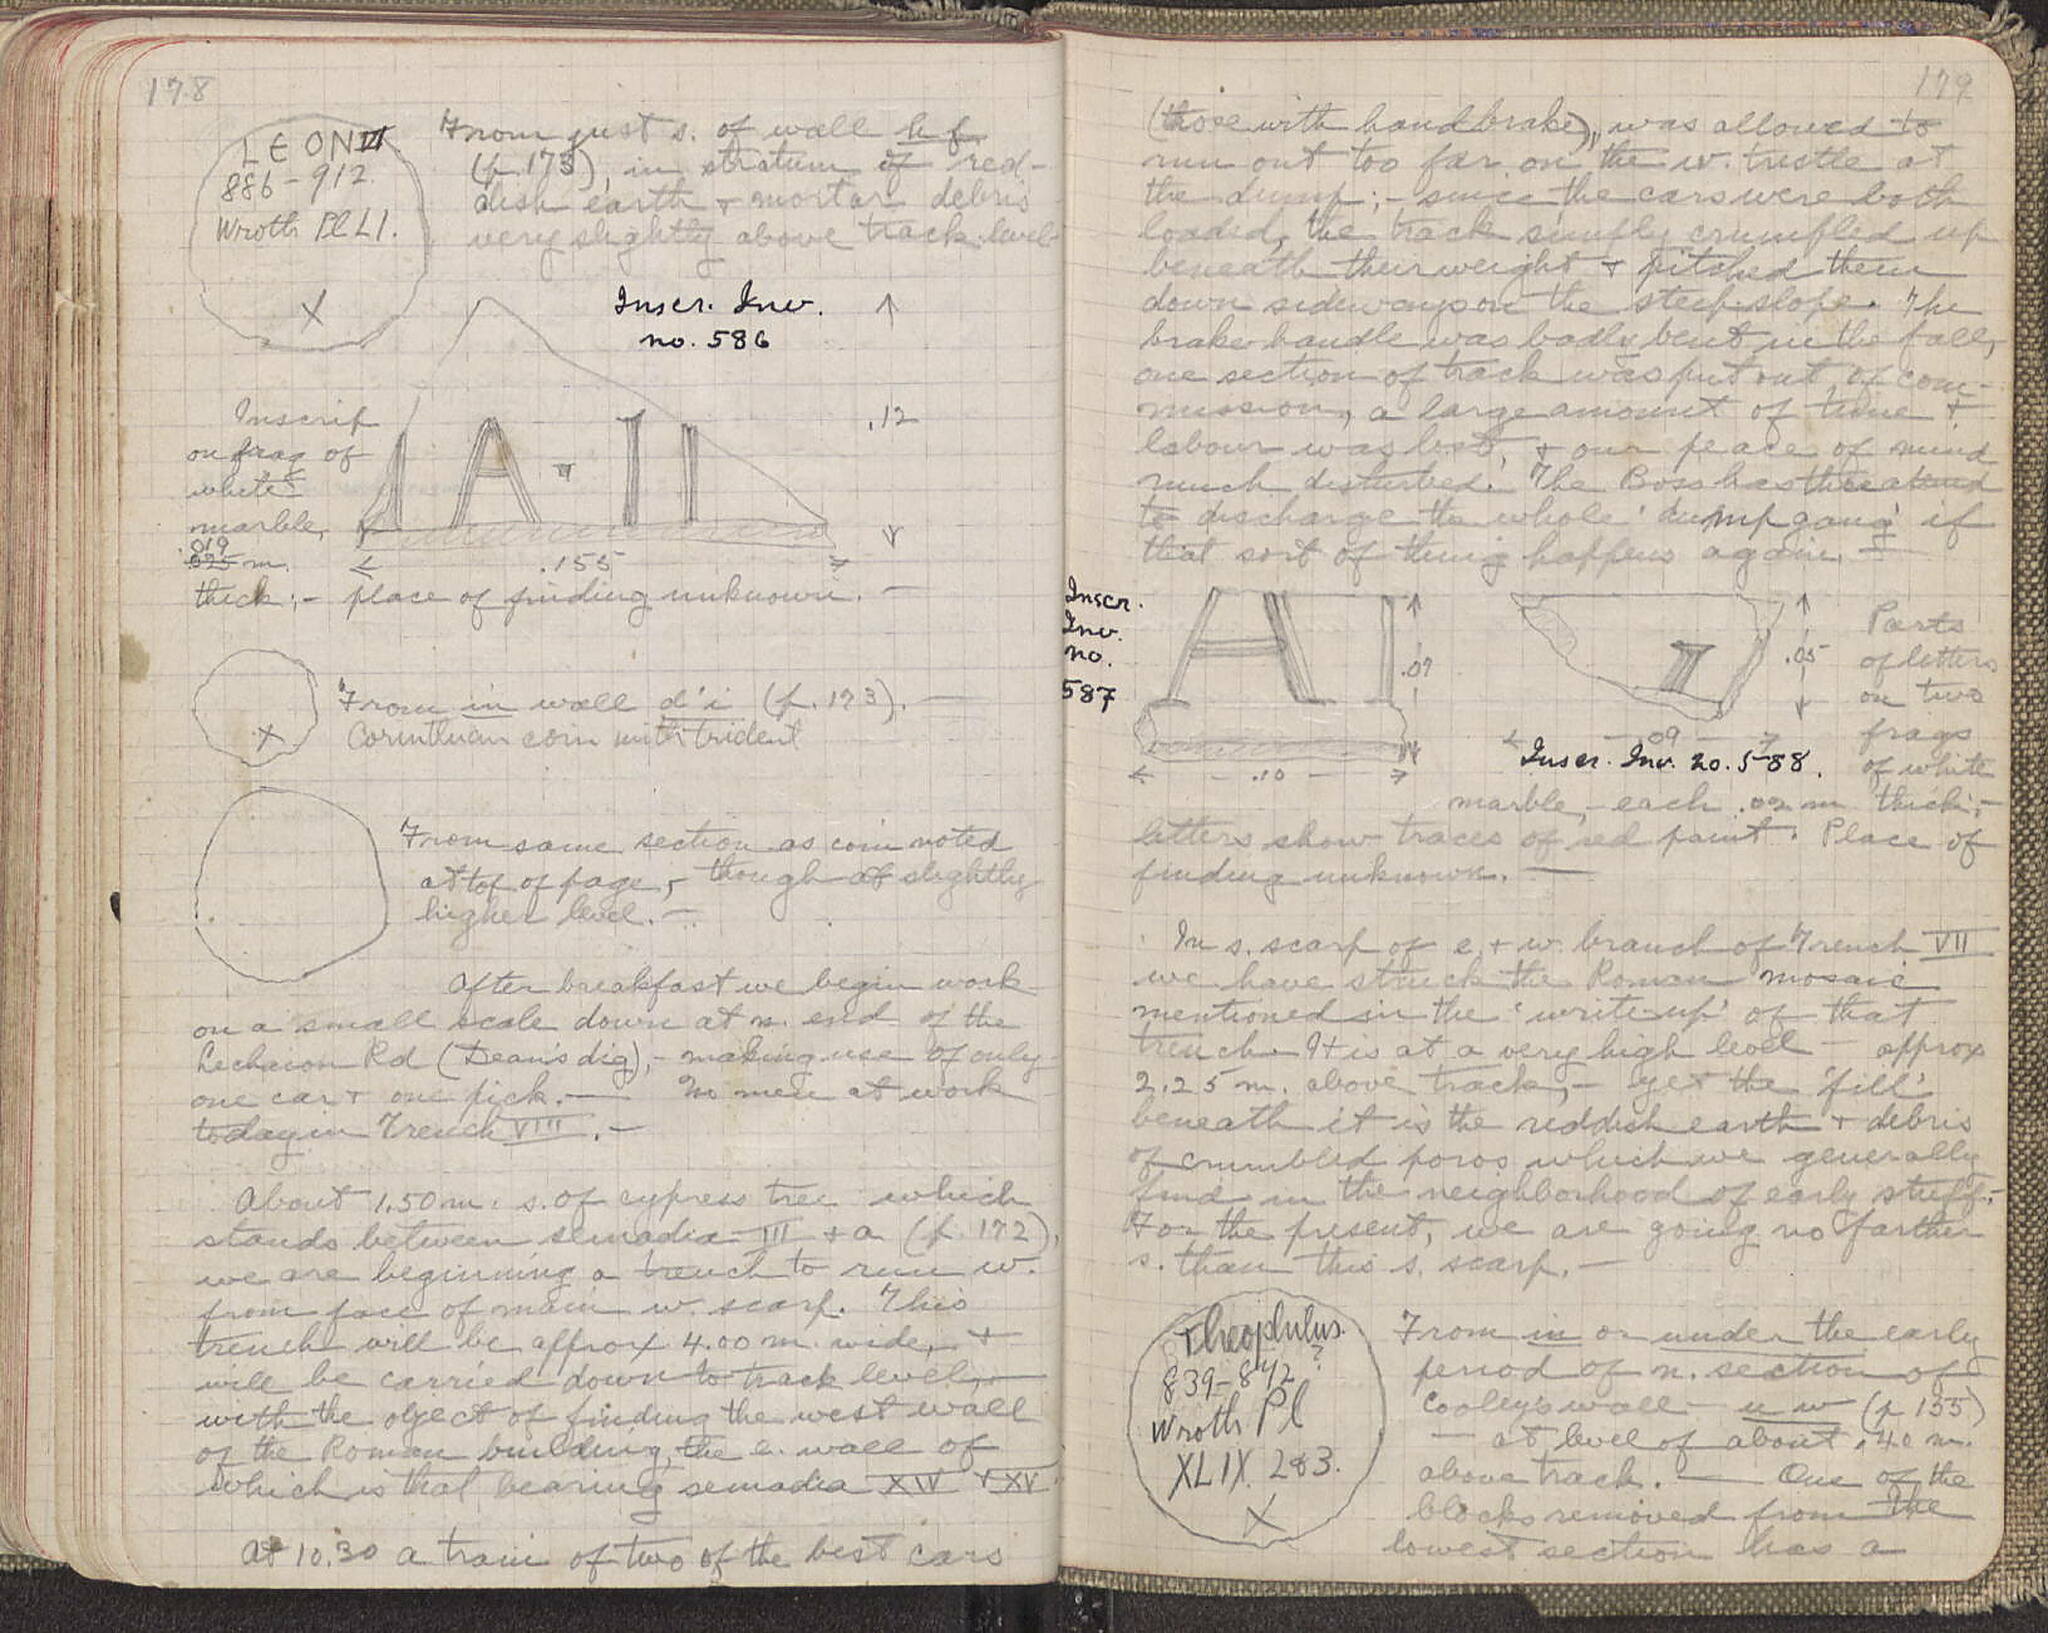 178
LEON VI
886-912.
Wroth Pl LI.
X
From just s. of wall h f
(p. 173), in stratum of red-
dish earth + mortar debris
very slightly above track level
Inscr. Inv.
no. 586
Inscrip
on frag of
white
marble,
.019
.025 m.
thick; - place of finding unknown. -
I A · I I
.12
.155
X
From in wall d'i (p. 173). —
Corinthian coin with trident
From same section as coin noted
at top of page, - though at slightly
higher level. -
After breakfast we begin work
on a small scale down at n. end of the
Lechaion Rd (Dean's dig), - making use of only
one car + one pick. — No men at work
today in Trench VIII. -
About 1.50 m. s. of cypress tree which
stands between semadia III + a (p. 172),
we are beginning a trench to run w.
from face of main w. scarp. This
trench will be approx 4.00 m. wide, +
will be carried down to track level, -
with the object of finding the west wall
of the Roman building, the e. wall of
which is that bearing semadia XIV + XV.
At 10.30 a train of two of the best cars
179
(those with hand brake), was allowed to
run out too far on the w. trestle at
the dump; - since the cars were both
loaded, the track simply crumpled up
beneath their weight + pitched them
down sideways on the steep slope. The
brake handle was badly bent in the fall,
one section of track was put out of com-
mission, a large amount of time +
labour was lost, + our peace of mind
much disturbed. The Boss has threatened
to discharge the whole 'dump gang' if
that sort of thing happens again. -
Inscr.
Inv.
no.
587
A I
.07
.10
.05
.09
Inscr. Inv. no. 588.
Parts
of letters
on two
frags
of white
marble, - each .02 m thick; -
letters show traces of red paint. Place of
finding unknown. —
In s. scarp of e. + w. branch of Trench VII
we have struck the Roman mosaic
mentioned in the 'write-up' of that
trench. It is at a very high level - approx
2.25 m. above track, - yet the 'fill'
beneath it is the reddish earth + debris
of crumbled poros which we generally
find in the neighborhood of early stuff. -
For the present, we are going no farther
s. than this s. scarp. -
Theophilus.
?
839-842
Wroth Pl
XLIX. 283.
X
From in or under the early
period of n. section of
Cooley's wall - u w (p 155)
- at level of about .40 m.
above track. — One of the
blocks removed from the
lowest section has a